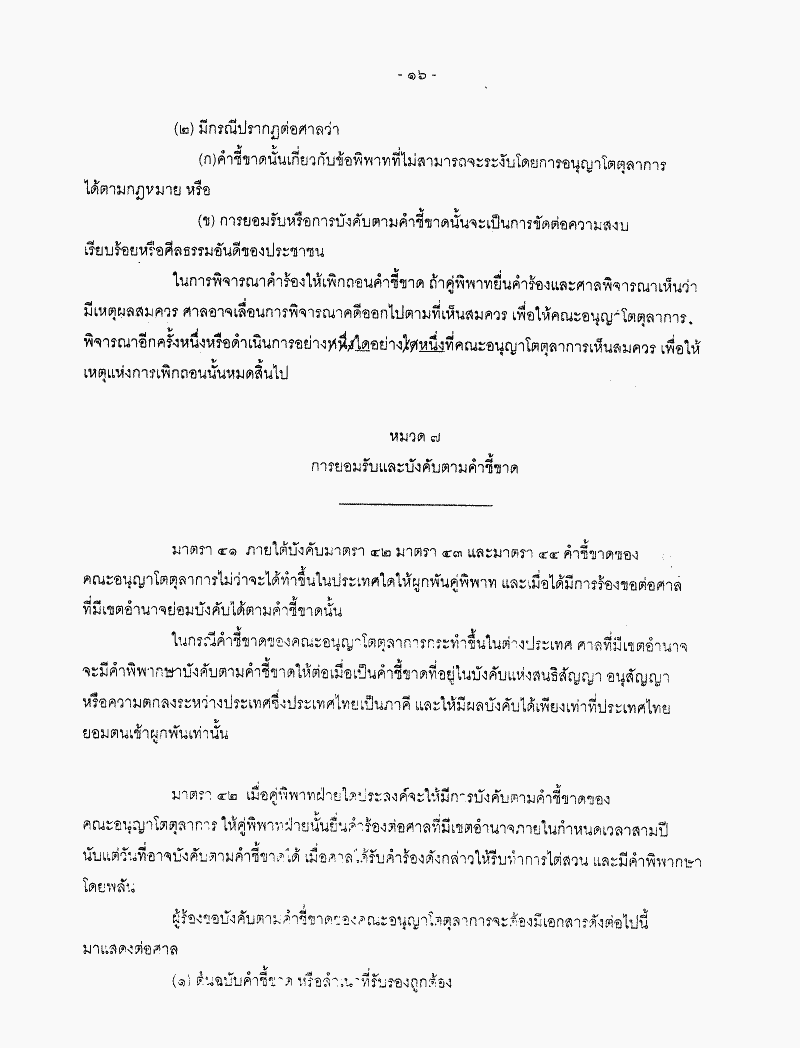 - ๑๖ -
(๒) มีกรณีปรากฏต่อศาลว่า
(ก)คำชี้ขาดนั้นเกี่ยวกับข้อพิพาทที่ไม่สามารถจะระงับโดยการอนุญาโตตุลาการ
ได้ตามกฎหมาย หรือ
(ข) การยอมรับหรือการบังคับตามคำชี้ขาดนั้นจะเป็นการขัดต่อความสงบ
เรียบร้อยหรือศีลธรรมอันดีของประชาชน
ในการพิจารณาคำร้องให้เพิกถอนคำชี้ขาด ถ้าคู่พิพาทยื่นคำร้องและศาลพิจารณาเห็นว่า
มีเหตุผลสมควร ศาลอาจเลื่อนการพิจารณาคดีออกไปตามที่เห็นสมควร เพื่อให้คณะอนุญาโตตุลาการ
พิจารณาอีกครั้งหนึ่งหรือดำเนินการอย่างหนึ่งใดอย่างใดหนึ่งที่คณะอนุญาโตตุลาการเห็นสมควร เพื่อให้
เหตุแห่งการเพิกถอนนั้นหมดสิ้นไป
หมวด ๗
การยอมรับและบังคับตามคำชี้ขาด
มาตรา ๔๑ ภายใต้บังคับมาตรา ๔๒ มาตรา ๔๓ และมาตรา ๔๔ คำชี้ขาดของ
คณะอนุญาโตตุลาการไม่ว่าจะได้ทำขึ้นในประเทศใดให้ผูกพันคู่พิพาท และเมื่อได้มีการร้องขอต่อศาล
ที่มีเขตอำนาจย่อมบังคับได้ตามคำชี้ขาดนั้น
ในกรณีคำชี้ขาดของคณะอนุญาโตตุลาการกระทำขึ้นในต่างประเทศ ศาลที่มีเขตอำนาจ
จะมีคำพิพากษาบังคับตามคำชี้ขาดให้ต่อเมื่อเป็นคำชี้ขาดที่อยู่ในบังคับแห่งสนธิสัญญา อนุสัญญา
หรือความตกลงระหว่างประเทศซึ่งประเทศไทยเป็นภาคี และให้มีผลบังคับได้เพียงเท่าที่ประเทศไทย
ยอมตนเข้าผูกพันเท่านั้น
มาตรา ๔๒ เมื่อคู่พิพาทฝ่ายใดประสงค์จะให้มีการบังคับตามคำชี้ขาดของ
คณะอนุญาโตตุลาการ ให้คู่พิพาทฝ่ายนั้นยื่นคำร้องต่อศาลที่มีเขตอำนาจภายในกำหนดเวลาสามปี
นับแต่วันที่อาจบังคับตามคำชี้ขาดได้ เมื่อศาลได้รับคำร้องดังกล่าวให้รีบทำการไต่สวน และมีคำพิพากษา
โดยพลัน
ผู้ร้องขอบังคับตามคำชี้ขาดของคณะอนุญาโตตุลาการจะต้องมีเอกสารดังต่อไปนี้
มาแสดงต่อศาล
(๑) ต้นฉบับคำชี้ขาด หรือสำเนาที่รับรองถูกต้อง